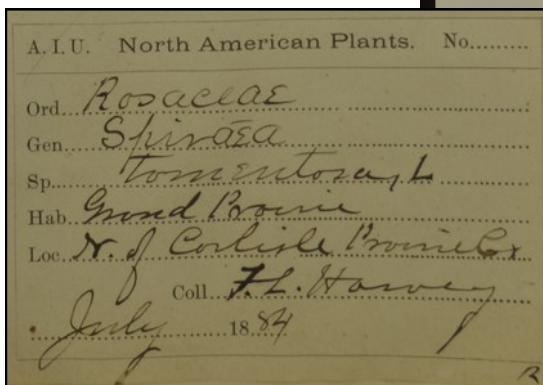 A. I. U. North American Plants. No.........
Ord. Rosaceae
Gen. Spiraea
Sp. tomentosa, L
Hab. Grand Prairie
Loc. N. of Carlisle Prairie Co.
Coll. F. L. Harvey
July 1884
R